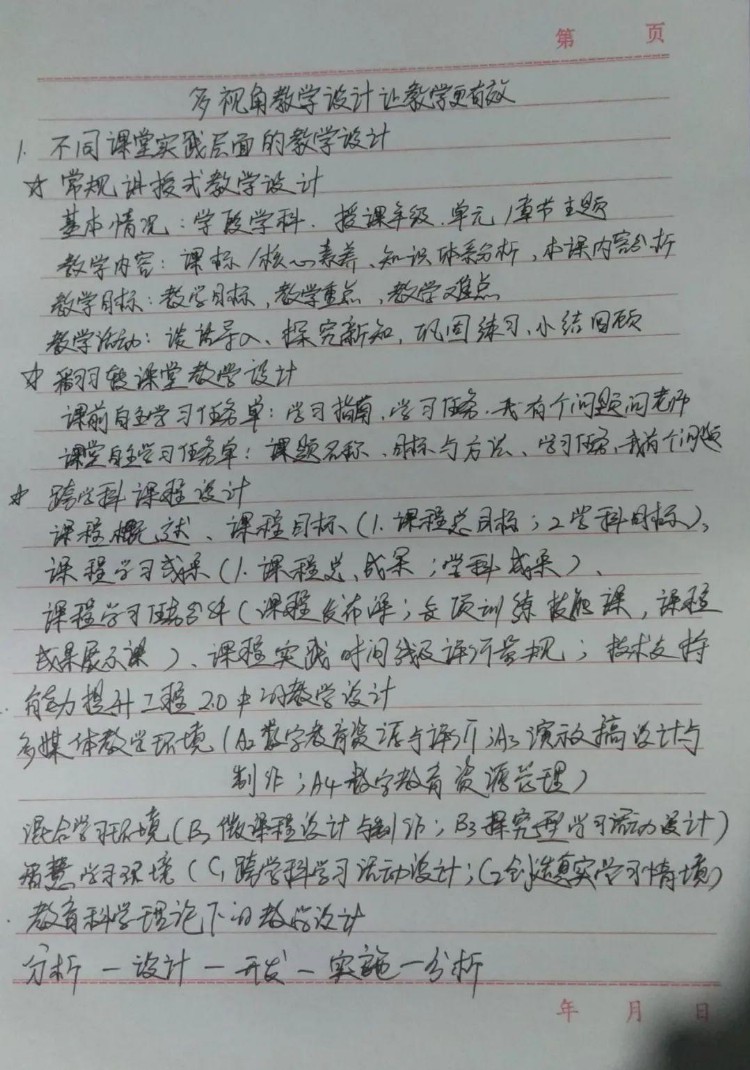 第 页
多视角教学设计让教学更有效
1. 不同课堂实践层面的教学设计
☆ 常规讲授式教学设计
基本情况：学段学科、授课年级、单元/章节主题
教学内容：课标/核心素养、知识体系分析，本课内容分析
教学目标：教学目标，教学重点，教学难点
教学活动：谈话导入、探究新知，巩固练习，小结回顾
☆ 翻转课堂教学设计
课前自主学习任务单：学习指南，学习任务，我有个问题问老师
课堂自主学习任务单：课题名称、目标与方法、学习任务，我有个问题
☆ 跨学科课程设计
课程概述、课程目标（1.课程总目标；2学科目标）、
课程学习成果（1.课程总、成果；学科成果）、
课程学习任务（课程发布课；专项训练技能课，课程
成果展示课）、课程实践时间线及评价量规；技术支持
能力提升工程2.0中的教学设计
多媒体教学环境（A2数字教育资源与评价；A3演示文稿设计与
制作；A4数字教育资源管理）
混合学习环境（B2微课程设计与制作；B3探究型学习活动设计）
智慧学习环境（C1跨学科学习活动设计；C2创造真实学习情境）
教育科学理论下的教学设计
分析—设计—开发—实施—分析
年 月 日